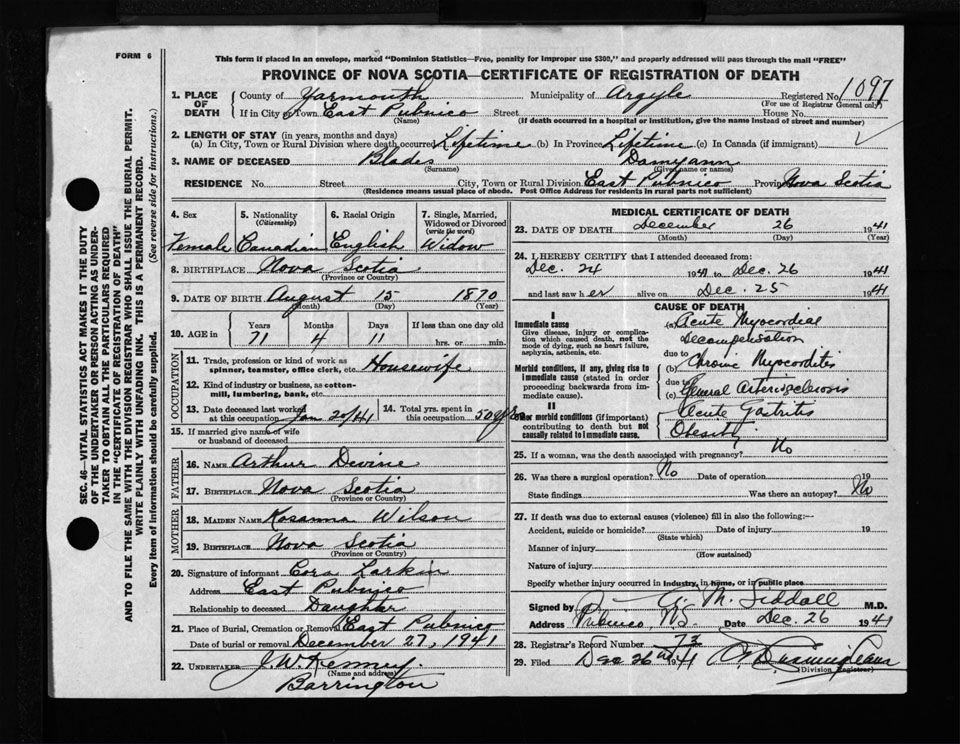 FORM 6
This form if placed in an envelope, marked "Dominion Statistics—Free, penalty for improper use $300," and properly addressed will pass through the mail "FREE"
PROVINCE OF NOVA SCOTIA—CERTIFICATE OF REGISTRATION OF DEATH
1. PLACE OF DEATH County of Yarmouth Municipality of Argyle Registered No. 1097
(For use of Registrar General only)
If in City or Town East Pubnico Street House No.
(Name) (If death occurred in a hospital or institution, give the name instead of street and number)
2. LENGTH OF STAY (in years, months and days)
(a) In City, Town or Rural Division where death occurred Lifetime (b) In Province Lifetime (c) In Canada (if immigrant)
3. NAME OF DECEASED Blades Damyann
(Surname) (Given name or names)
RESIDENCE No. Street City, Town or Rural Division East Pubnico Province Nova Scotia
(Residence means usual place of abode. Post Office Address for residents in rural parts not sufficient)
4. Sex 5. Nationality (Citizenship) 6. Racial Origin 7. Single, Married, Widowed or Divorced (write the word)
Female Canadian English Widow
8. BIRTHPLACE Nova Scotia
(Province or Country)
9. DATE OF BIRTH August 15 1870
(Month) (Day) (Year)
10. AGE in Years Months Days If less than one day old
71 4 11 hrs. or min.
OCCUPATION
11. Trade, profession or kind of work as spinner, teamster, office clerk, etc. Housewife
12. Kind of industry or business, as cotton-mill, lumbering, bank, etc.
13. Date deceased last worked at this occupation Jan 20/41 14. Total yrs. spent in this occupation 50 yrs
15. If married give name of wife or husband of deceased
FATHER
16. NAME Arthur Devine
17. BIRTHPLACE Nova Scotia
(Province or Country)
MOTHER
18. MAIDEN NAME Rosanna Wilson
19. BIRTHPLACE Nova Scotia
(Province or Country)
20. Signature of informant Cora Larkin
Address East Pubnico
Relationship to deceased Daughter
21. Place of Burial, Cremation or Removal East Pubnico
Date of burial or removal December 27, 1941
22. UNDERTAKER J. W. Kenney.
Barrington
MEDICAL CERTIFICATE OF DEATH
23. DATE OF DEATH December 26 1941
(Month) (Day) (Year)
24. I HEREBY CERTIFY that I attended deceased from:
Dec. 24 1941 to Dec. 26 1941
and last saw her alive on Dec. 25 1941
CAUSE OF DEATH
I
Immediate cause
Give disease, injury or complication which caused death, not the mode of dying, such as heart failure, asphyxia, asthenia, etc.
(a) Acute Myocardial
Decompensation
due to
Morbid conditions, if any, giving rise to immediate cause (stated in order proceeding backwards from immediate cause).
(b) Chronic Myocordites
due to
(c) General Arteriosclerosis
II
Other morbid conditions (if important) contributing to death but not causally related to immediate cause.
Acute Gastritis
Obesity
25. If a woman, was the death associated with pregnancy? No
26. Was there a surgical operation? No Date of operation 19
State findings Was there an autopsy? No
27. If death was due to external causes (violence) fill in also the following:—
Accident, suicide or homicide? Date of injury 19
(State which)
Manner of injury
(How sustained)
Nature of injury
Specify whether injury occurred in industry, in home, or in public place
Signed by M. Siddall M.D.
Address Pubnico, N.S. Date Dec. 26 1941
28. Registrar's Record Number 73
29. Filed Dec 26th 1941
(Division Registrar)
SEC. 46—VITAL STATISTICS ACT MAKES IT THE DUTY
OF THE UNDERTAKER OR PERSON ACTING AS UNDER-
TAKER TO OBTAIN ALL THE PARTICULARS REQUIRED
IN THE "CERTIFICATE OF REGISTRATION OF DEATH"
AND TO FILE THE SAME WITH THE DIVISION REGISTRAR WHO SHALL ISSUE THE BURIAL PERMIT.
WRITE PLAINLY WITH UNFADING INK. THIS IS A PERMANENT RECORD.
Every item of information should be carefully supplied. (See reverse side for instructions.)